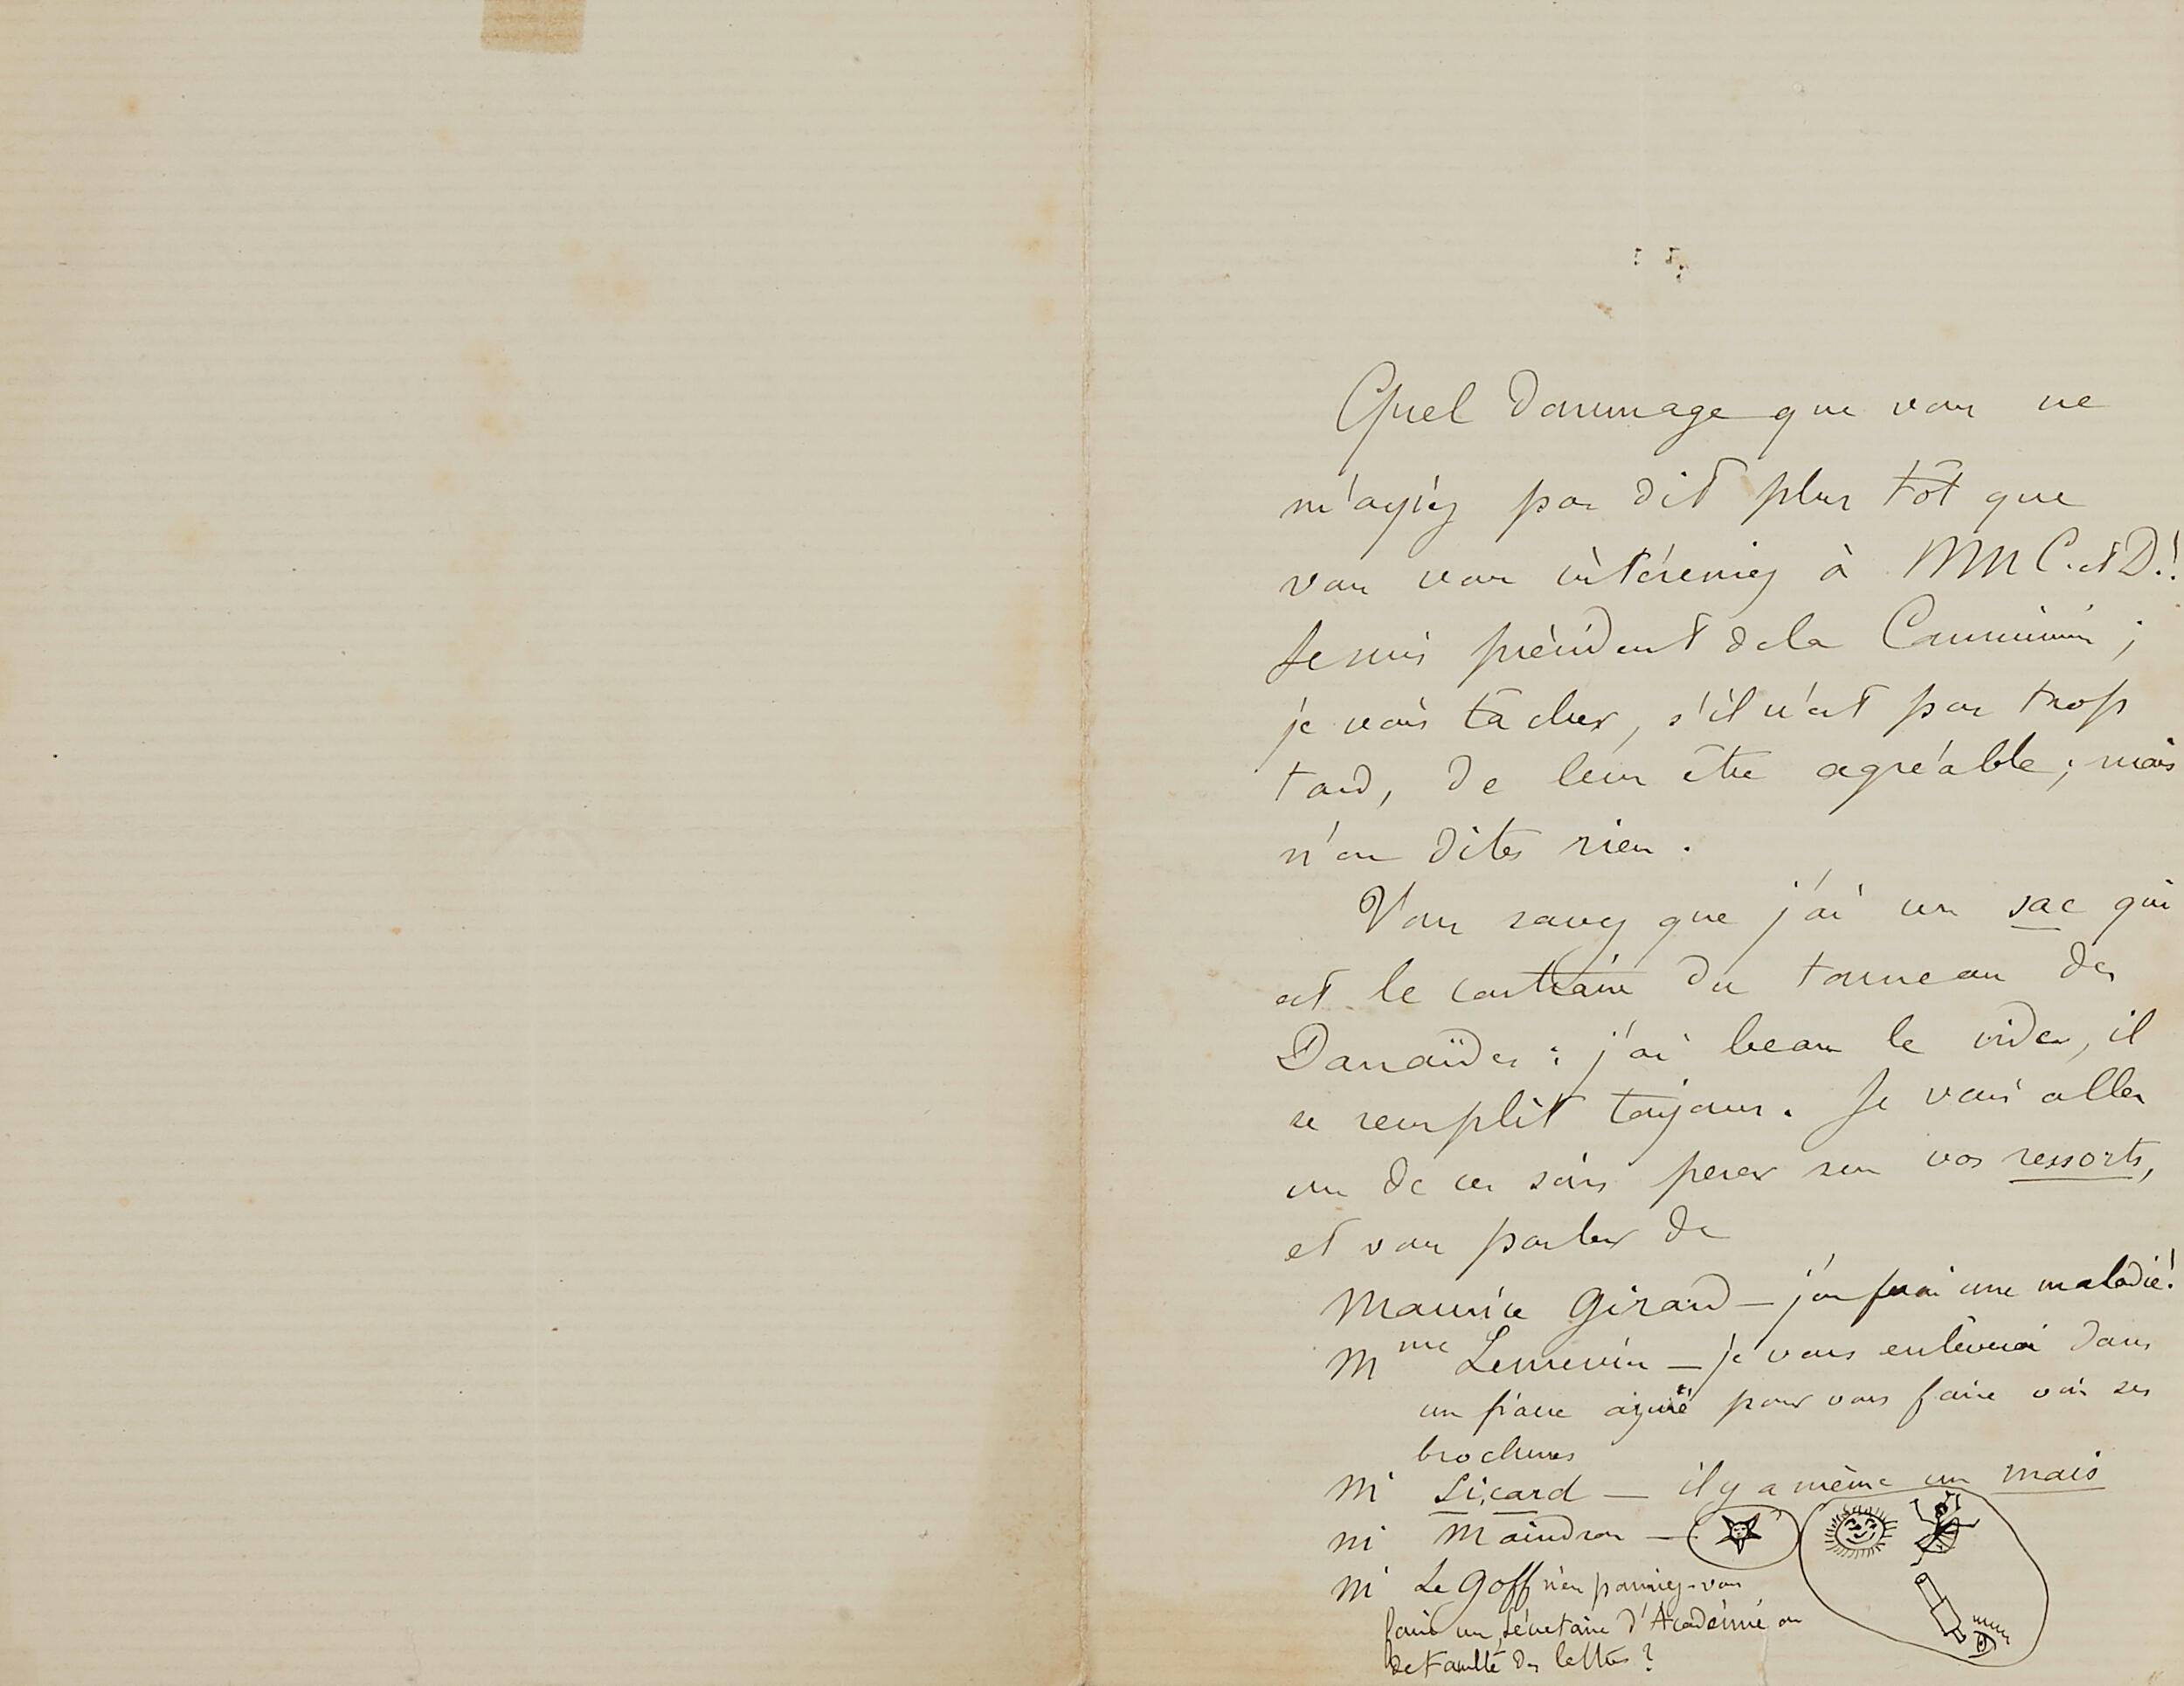 Quel dommage que vous ne
m'ayiez pas dit plus tôt que
vous vous intéressiez à MM C. et D.!
Je suis président de la Commission ;
je vais tâcher, s'il n'est pas trop
tard, de leur être agréable ; mais
n'en dites rien .
Vous savez que j'ai un sac qui
est le contraire du tonneau des
Danaïdes : j'ai beau le vider, il
se remplit toujours. Je vais aller
un de ces soirs peser sur vos ressorts,
et vous parler de
Maurice Girard — j'en ferai une maladie!
Mme — je vous enlèverai dans
un fiacre pour vous faire voir ses
brochures
M' Sicard — il y a même un mais
M' Maindron —
M' Le Goff n'en pourriez-vous
faire un Secrétaire d'Académie ou
de Faculté des lettres ?